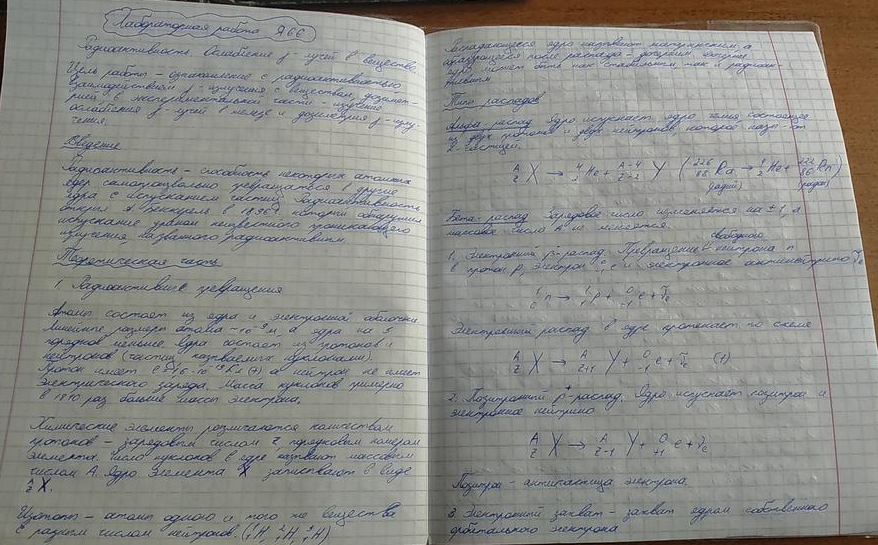 Лабораторная работа №66
Радиоактивность. Ослабление γ-лучей в веществе
Цель работы - ознакомление с радиоактивностью
взаимодействием γ-излучения с веществом, дозимет-
рией, в экспериментальной части - изучение
ослабления γ-лучей в железе и дозиметрия γ-излу-
чения.
Введение
Радиоактивность - способность некоторых атомных
ядер самопроизвольно превращаться в другие
ядра с испусканием частиц. Радиоактивность
открыл А Беккерель в 1896 г, который обнаружил
испускание ураном неизвестного проникающего
излучения названного радиоактивным.
Теоретическая часть
1. Радиоактивные превращения
Атомы состоят из ядра и электронной оболочки.
Линейные размеры атома ~10⁻⁹ м, а ядра на 5
порядков меньше. Ядра состоят из протонов и
нейтронов (частиц называемых нуклонами).
Протон имеет Кл (+) а нейтрон не имеет
электрического заряда. Масса нуклонов примерно
в 1840 раз больше массы электрона.
Химические элементы различаются количеством
протонов - зарядовым числом Z порядковым номером
элемента. Число нуклонов в ядре называют массовым
числом А. Ядро элемента X записывают в виде
ᴬ_Z X.
Изотопы - атомы одного и того же вещества
с разным числом нейтронов. (¹₁H, ²₁H, ³₁H)
Распадающееся ядро называют материнским, а
образующееся после распада - дочерним. Дочернее
ядро может быть как стабильным, так и радиоак-
тивным
Типы распадов
Альфа-распад Ядро испускает ядро гелия состоящее
из двух протонов и двух нейтронов, которое назы-ют
α-частицей.
ᴬ_Z X → ⁴₂He + ᴬ⁻⁴_Z₋₂ Y (²²⁶₈₈Ra → ⁴₂He + ²²²₈₆Rn)
(радий) (радон)
Бета-распад Зарядовое число изменяется на ±1, а
массовое число А не меняется.
свободного
1. Электронный β⁻-распад. Превращение нейтрона n
в протон p, электрон ⁰₋₁e и электронное антинейтрино ν̃e
¹₀n → ¹₁p + ⁰₋₁e + ν̃e
Электронный распад в ядре протекает по схеме
ᴬ_Z X → ᴬ_Z₊₁ Y + ⁰₋₁e + ν̃e (1)
2. Позитронный β⁺-распад. Ядро испускает позитрон и
электронное нейтрино
ᴬ_Z X → ᴬ_Z₋₁ Y + ⁰₊₁e + νe
Позитрон - античастица электрона
3 Электронный захват - захват ядром собственного
орбитального электрона